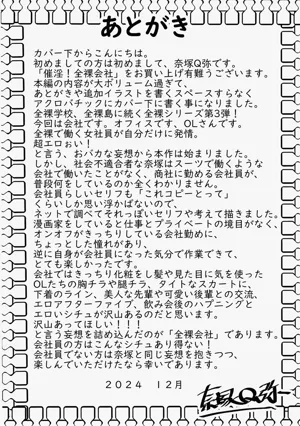 あとがき
カバー下からこんにちは。
初めましての方は初めまして、奈塚Q弥です。
「催淫!全裸会社」をお買い上げ有難うございます。
本編の内容が大ボリューム過ぎて、
あとがきや追加イラストを書くスペースすらなく
アクロバチックにカバー下に書く事になりました。
全裸学校、全裸島に続く全裸シリーズ第3弾!
今回は会社です。オフィスです、OLさんです。
全裸で働く女社員が自分だけに発情。
超エロぉい!
と言う、おバカな妄想から本作は始まりました。
しかし、社会不適合者な奈塚はスーツで働くような
会社で働いたことがなく、商社に勤める会社員が、
普段何をしているのか全くわかりません。
会社員らしいセリフも「これコピーとって」
くらいしか思い浮かばないので、
ネットで調べてそれっぽいセリフや考えて描きました。
漫画家をしていると仕事とプライベートの境目がなく、
オンオフがきっちりしている会社勤めに、
ちょっとした憧れがあり、
逆に自身が会社員になった気分で作業できて、
とても楽しかったです。
会社ではきっちり化粧をし髪や見た目に気を使った
OLたちの胸チラや腿チラ、タイトなスカートに、
下着のライン、美人な先輩や可愛い後輩との交流、
エロアフターファイブ、飲み会後のハプニングと
エロいシチュが沢山あるのだと思います。
沢山あってほしい!!!
と言う妄想を詰め込んだのが「全裸会社」であります。
会社員の方はこんなシチュあり得ない!
会社員でない方は奈塚と同じ妄想を抱きつつ、
楽しんでいただけたなら幸いであります。
2024 12月
奈塚Q弥